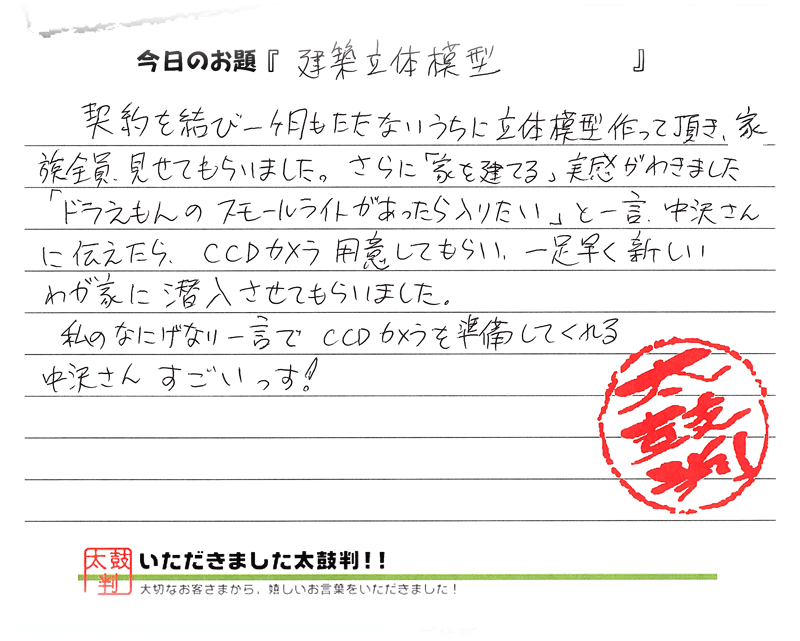 今日のお題『 建築立体模型 』
契約を結び一ヶ月もたたないうちに立体模型作って頂き、家
族全員、見せてもらいました。さらに「家を建てる」実感がわきました
「ドラえもんの スモールライトがあったら入りたい」と一言、中沢さん
に伝えたら、CCDカメラ用意してもらい、一足早く新しい
わが家に潜入させてもらいました。
私のなにげない一言でCCDカメラを準備してくれる
中沢さん すごいっす!
太鼓判
太鼓判
いただきました太鼓判!!
大切なお客さまから、嬉しいお言葉をいただきました!